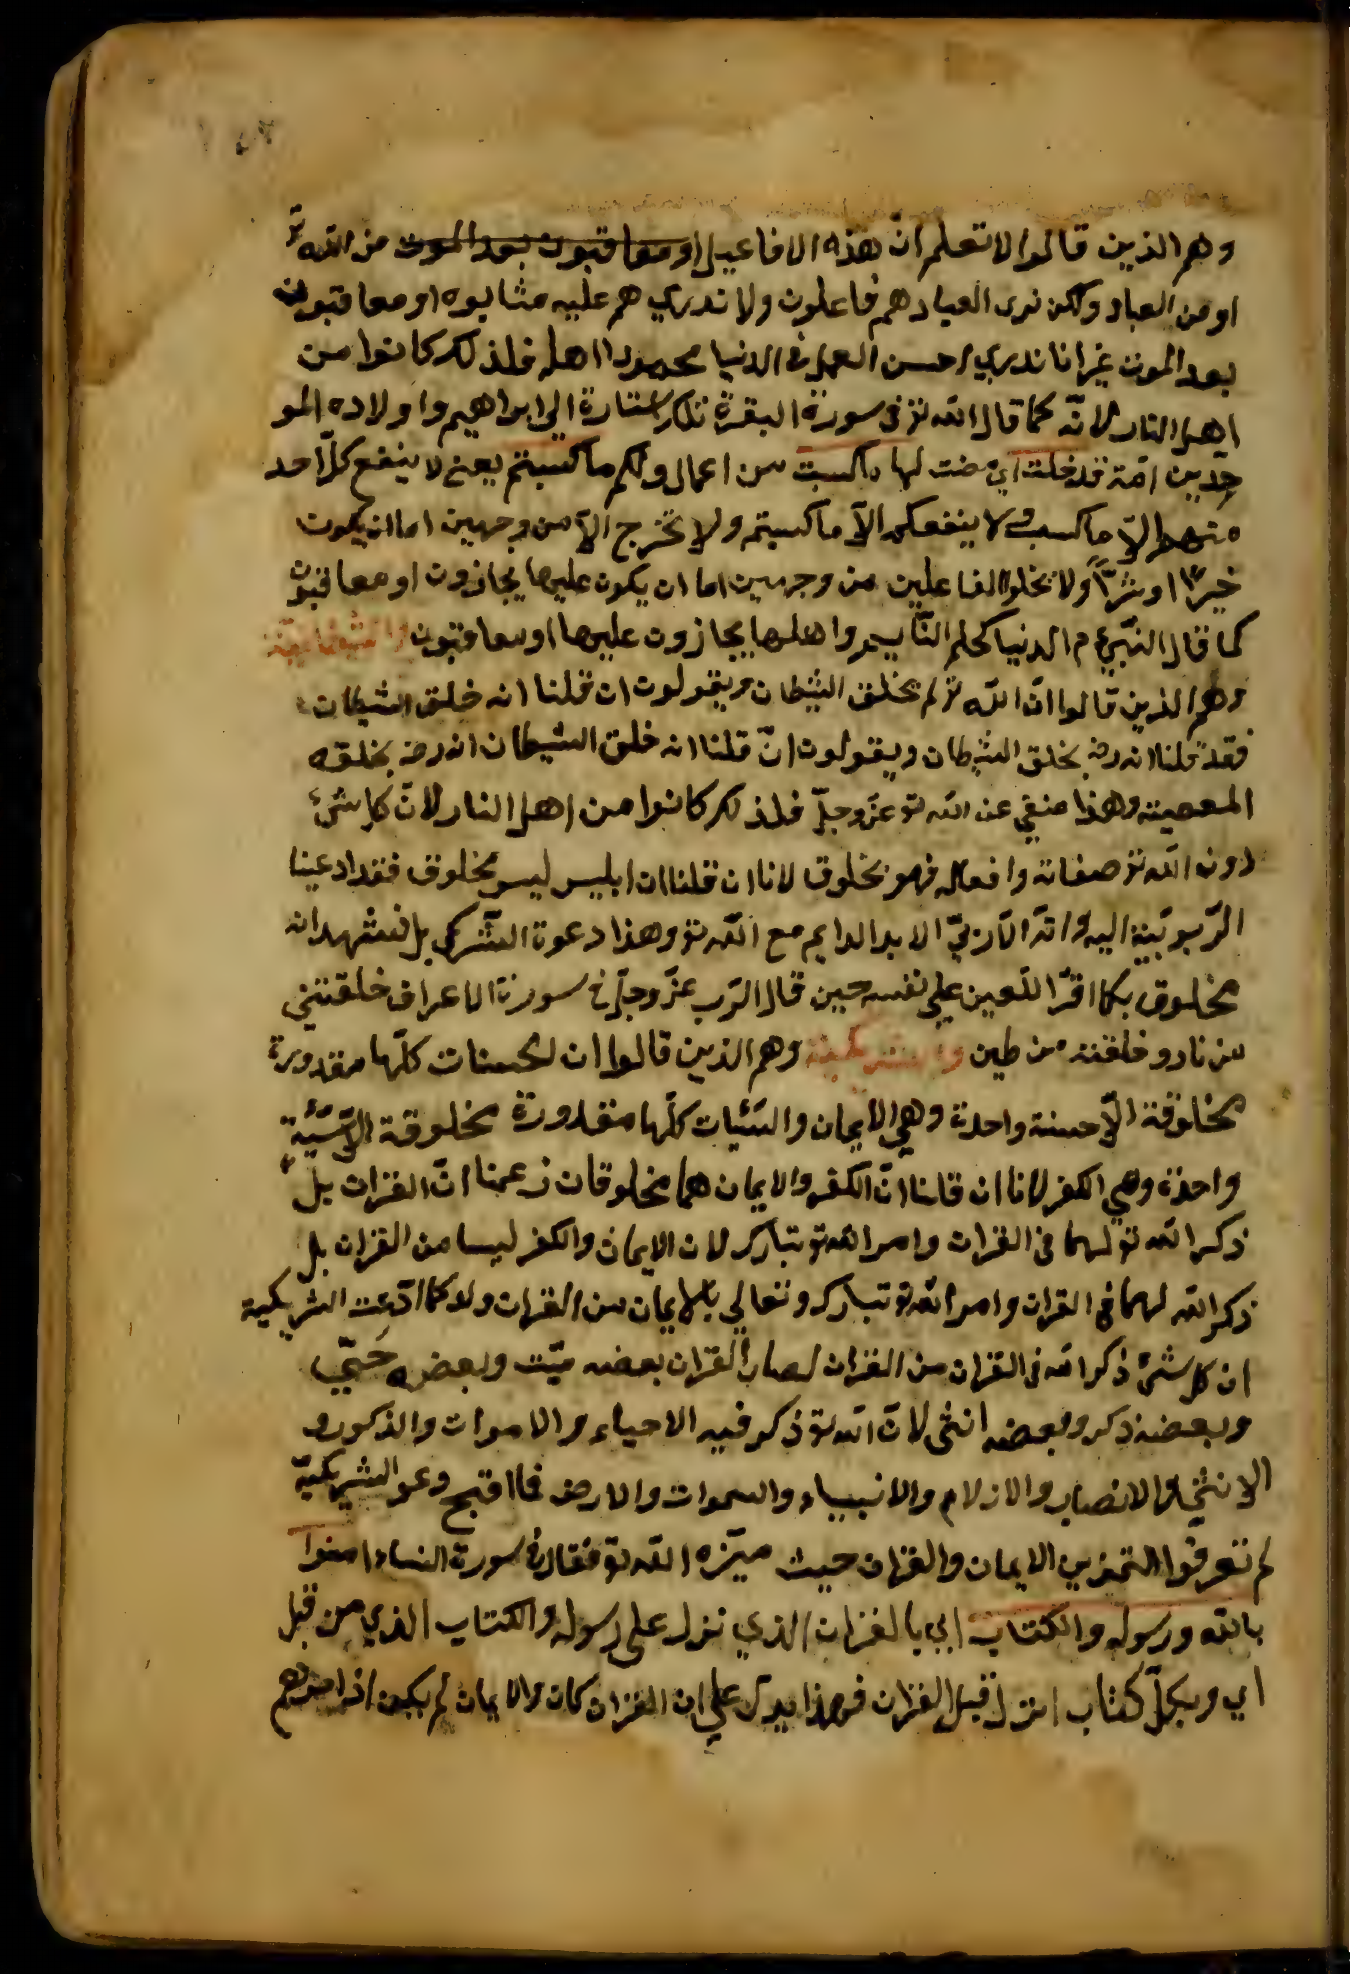 وهم الذين قالوا لا تعلم ان هذه الافاعيل او معاقبون بعد الموت من الله تع
او من العباد ولكن نرى العباد هم فاعلون ولا ندري هم عليه مثابوه او معاقبون
بعد الموت غير انا ندري احسن العمل في الدنيا محمودا اهله فلذلك كانوا من
اهل النار لانه كما قال الله تع في سورة البقرة تلك اشارة الى ابراهيم واولاده المو
حدين امة قد خلت اي مضت لها ما كسبت من اعمال ولكم ما كسبتم يعني لا ينفع كل احد
منهم الا ما كسب ولا ينفعكم الا ما كسبتم ولا تخرج الا من وجهين اما ان يكون
خيرًا او شرًّا ولا تخلوا الفاعلين من وجهين اما ان يكون عليها يجازون او معاقبون
كما قال النبي ع م الدنيا كحلم النايم واهلها يجازون عليها او معاقبون
وهم الذين قالوا ان الله تع لم يخلق الشيطان ويقولون ان قلنا انه خلق الشيطان
فقد قلنا انه رضي بخلق الشيطان ويقولون ان قلنا انه خلق الشيطان انه رضي بخلقه
المعصية وهذا منفي عن الله تع عز وجل فلذلك كانوا من اهل النار لان كل شئ
دون الله تع صفاته وافعاله فهو مخلوق لانا ان قلنا ان ابليس ليس مخلوق فقد ادعينا
الربوبية اليه وانه الازلي الابد الدايم مع الله تع وهذا دعوة الشرك بل نشهد انه
مخلوق بكما اقر اللعين على نفسه حين قال الرب عز وجل في سورة الاعراف خلقتني
من نار وخلقته من طين والشريكية وهم الذين قالوا ان الحسنات كلها مقدورة
مخلوقة الا حسنة واحدة وهي الايمان والسئيات كلها مقدورة مخلوقة الا سيئة
واحدة وهي الكفر لانا ان قلنا ان الكفر والايمان هما مخلوقان زعمنا ان القران بل
ذكر الله تع لهما في القران وامر الله تع تبارك لان الايمان والكفر ليسا من القران بل
ذكر الله لهما في القران وامر الله تع تبارك وتعالى بالايمان من القران ولو كما ادعت الشريكية
ان كل شئ ذكر الله في القران من القران لصار القران بعضه ميت وبعضه حيّ
وبعضه ذكر وبعضه انثى لان الله تع ذكر فيه الاحياء والاموات والذكور و
الانثى والانصاب والازلام والانبياء والسموات والارض فما اقبح دعو الشريكية
لم تعرفوا التمييز بين الايمان والقران حيث ميزه الله تع فقال في سورة النساء امنوا
بالله ورسوله والكتاب اي بالقران الذي نزل على رسوله والكتاب الذي من قبل
اي وبكل كتاب انزل قبل القران فهذا يدل على ان القران كان والايمان لم يكن اذ امرهم